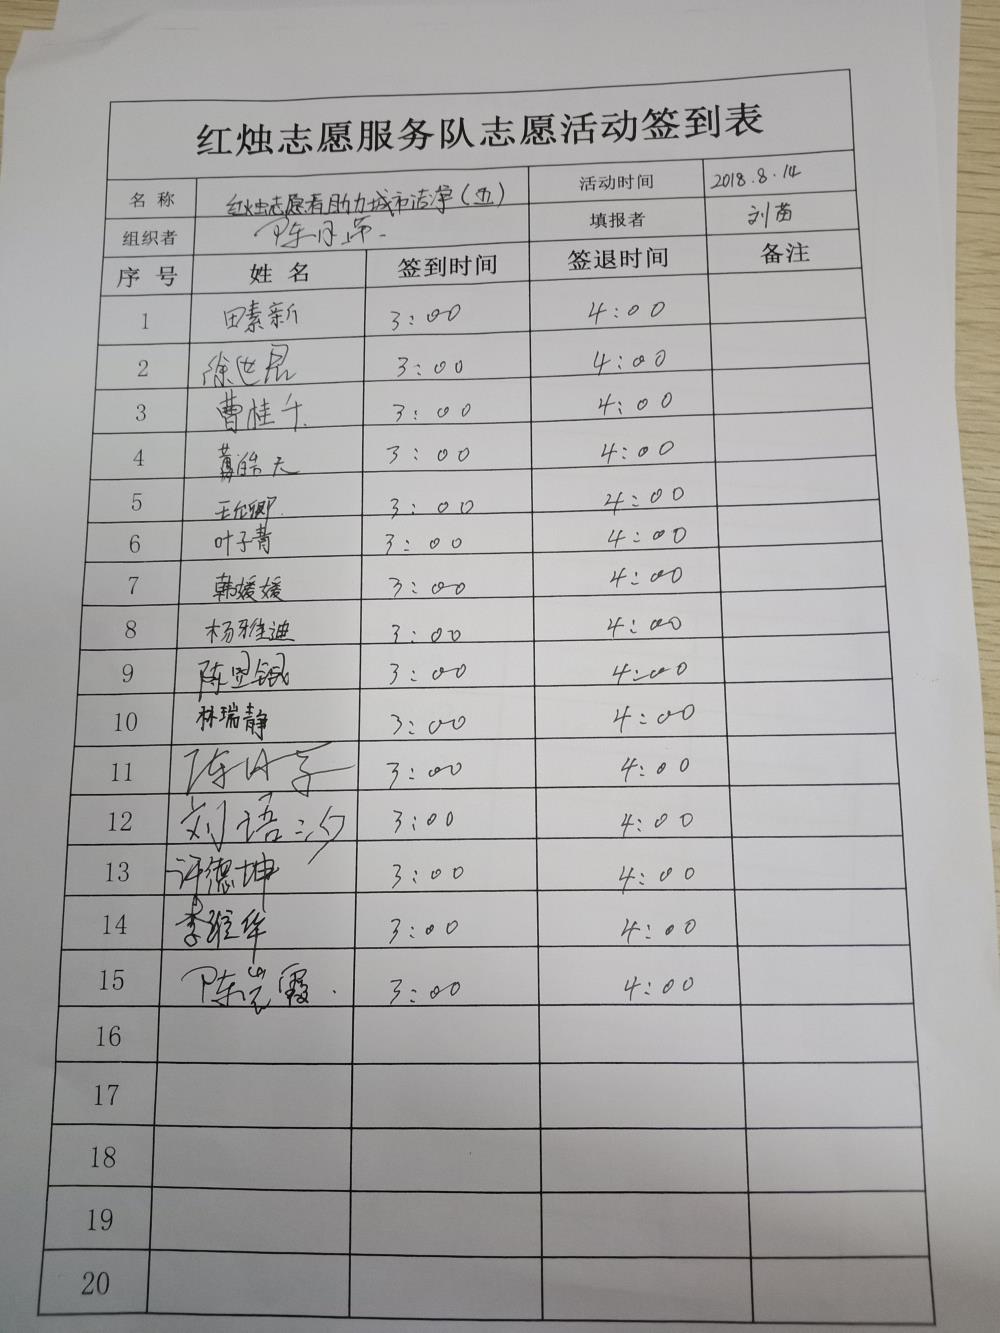 红烛志愿服务队志愿活动签到表
名 称 红烛志愿者助力城市洁净(五) 活动时间 2018.8.14
组织者 陈 填报者 刘苗
序 号 姓 名 签到时间 签退时间 备注
1 田素新 3:00 4:00
2 徐世 3:00 4:00
3 曹桂 3:00 4:00
4 皓天 3:00 4:00
5 王 3:00 4:00
6 叶子青 3:00 4:00
7 韩媛媛 3:00 4:00
8 杨雅迪 3:00 4:00
9 陈 3:00 4:00
10 林瑞静 3:00 4:00
11 陈 3:00 4:00
12 刘语 3:00 4:00
13 许德坤 3:00 4:00
14 李维华 3:00 4:00
15 陈 霞 3:00 4:00
16
17
18
19
20